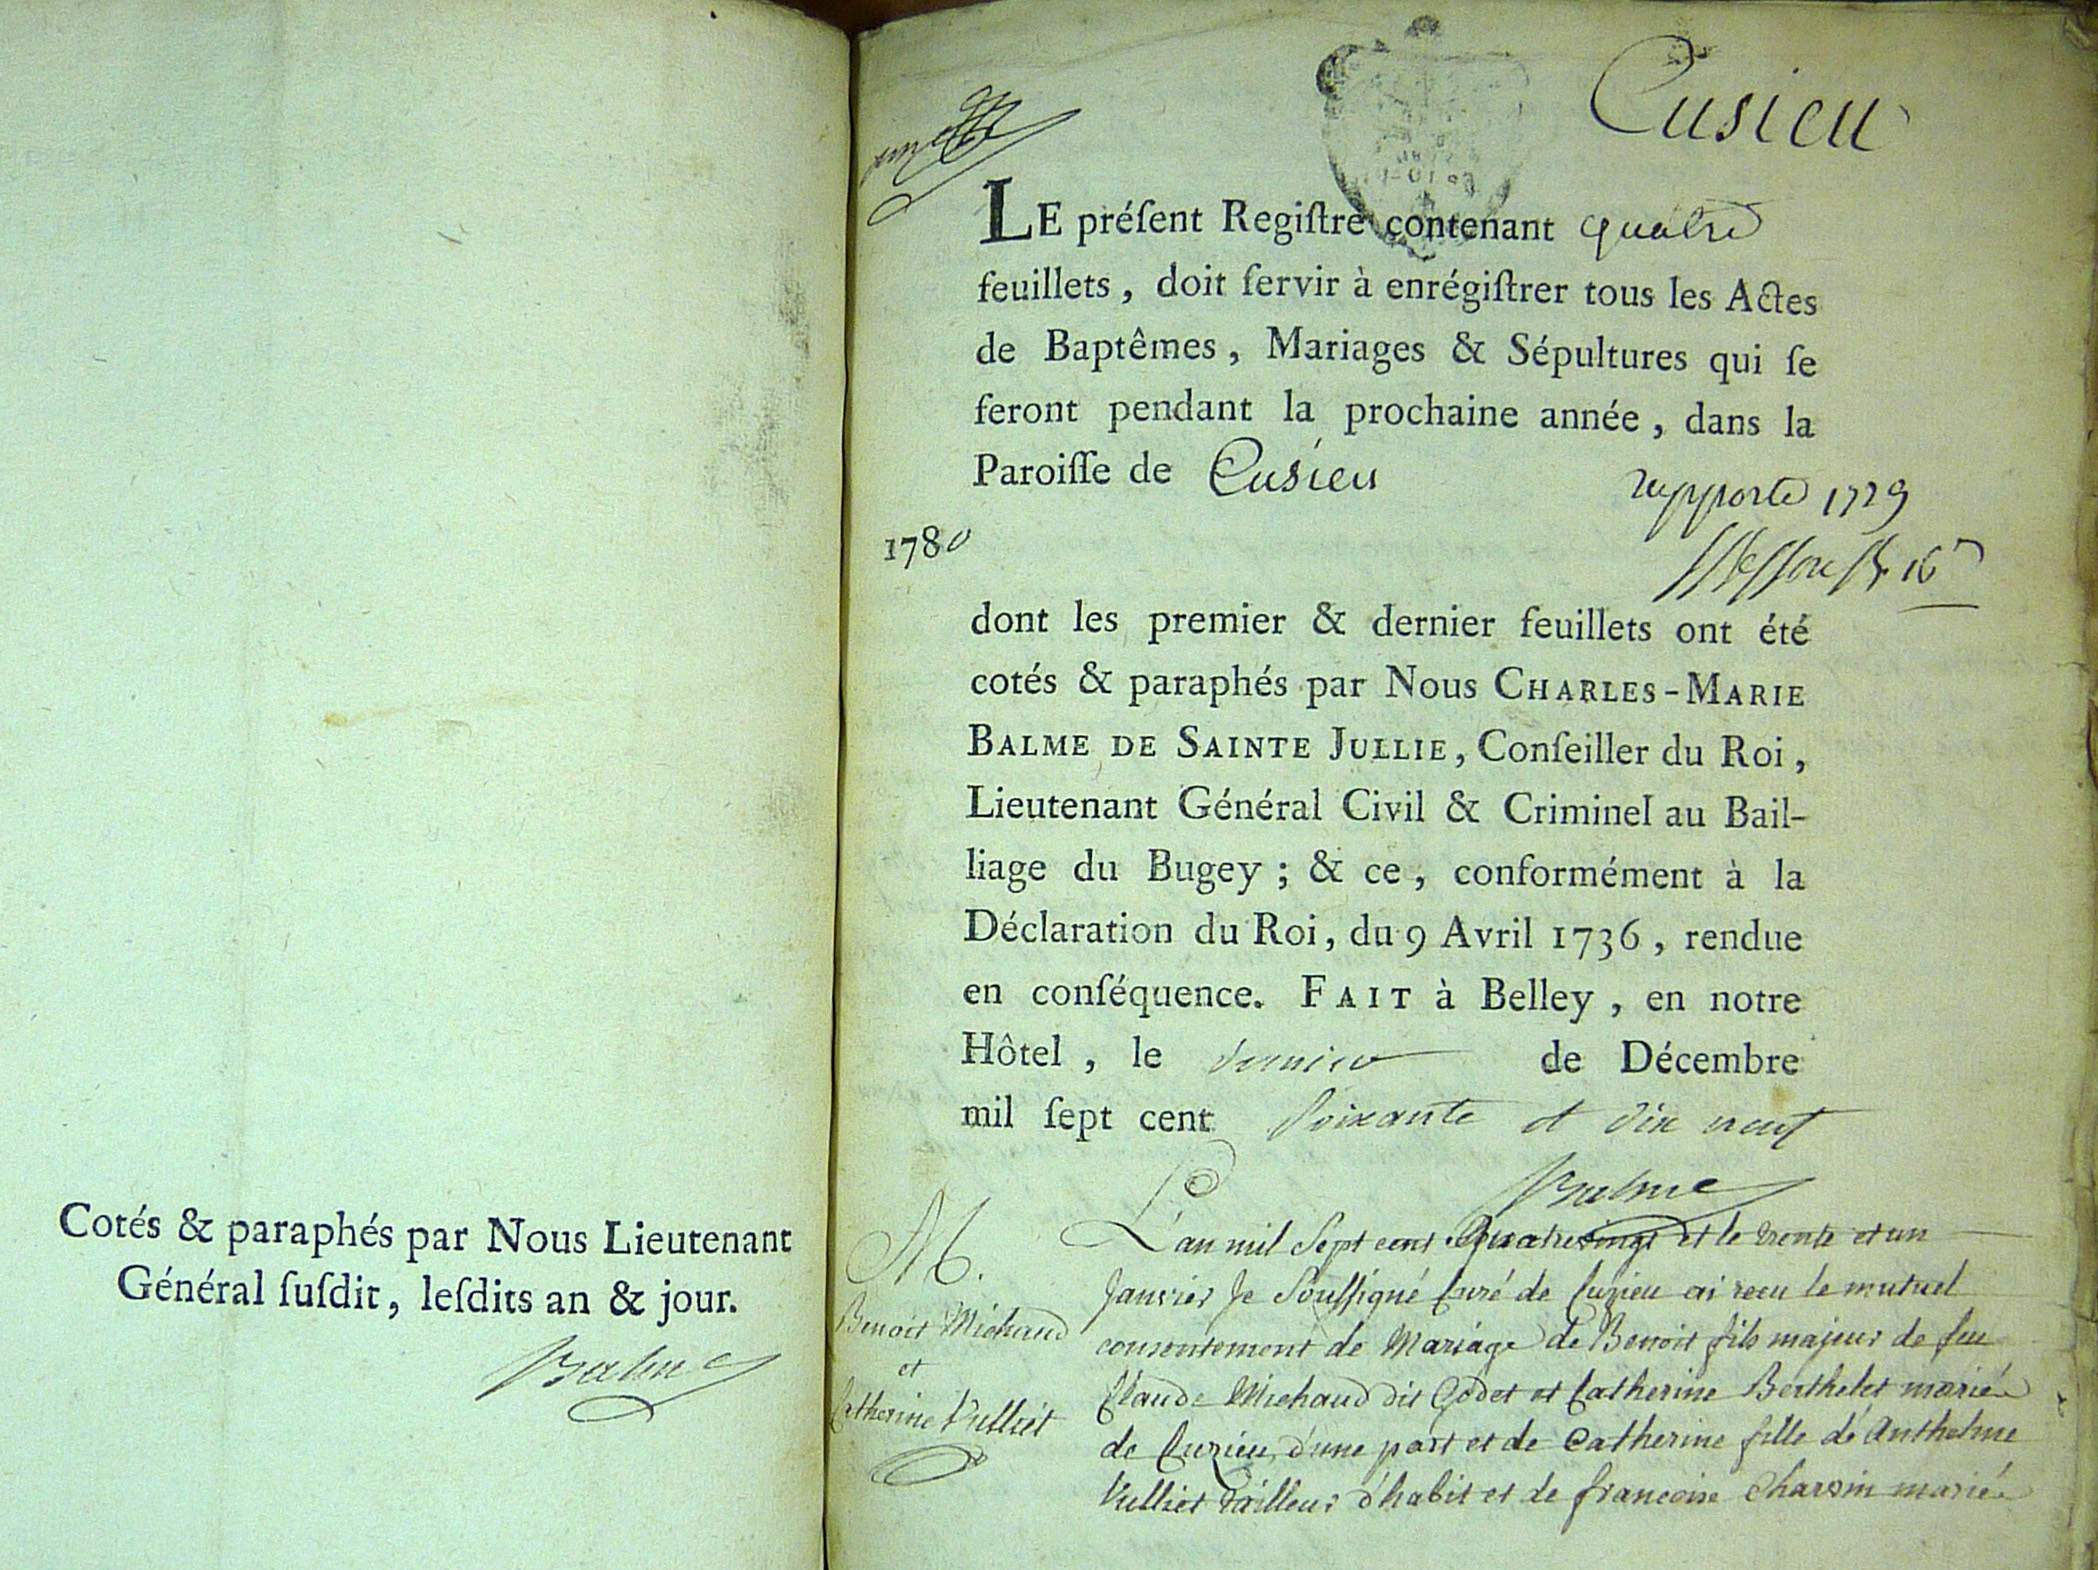 Cotés & paraphés par Nous Lieutenant
Général ſuſdit, leſdits an & jour.
Balme
Cusieu
LE préſent Regiſtre contenant quatre
feuillets, doit ſervir à enrégiſtrer tous les Actes
de Baptêmes, Mariages & Sépultures qui ſe
feront pendant la prochaine année, dans la
Paroiſſe de Cusieu
rapporté 1729
1780
dont les premier & dernier feuillets ont été
cotés & paraphés par Nous CHARLES-MARIE
BALME DE SAINTE JULLIE, Conſeiller du Roi,
Lieutenant Général Civil & Criminel au Bail-
liage du Bugey ; & ce, conformément à la
Déclaration du Roi, du 9 Avril 1736, rendue
en conſéquence. FAIT à Belley, en notre
Hôtel, le dernier de Décembre
mil ſept cent soixante et dix neuf
Balme
M.
Benoit Michaud
et
Catherine Vulliet
L'an mil Sept cent Quatrevingt et le trente et un
Janvier Je Soussigné Curé de Cuzieu ai recu le mutuel
consentement de Mariage de Benoit fils majeur de feu
Claude Michaud dit Godet et Catherine Berthelet mariés
de Cuzieu d'une part et de Catherine fille de Anthelme
Vulliet tailleur d'habit et de francoise Charvin mariés